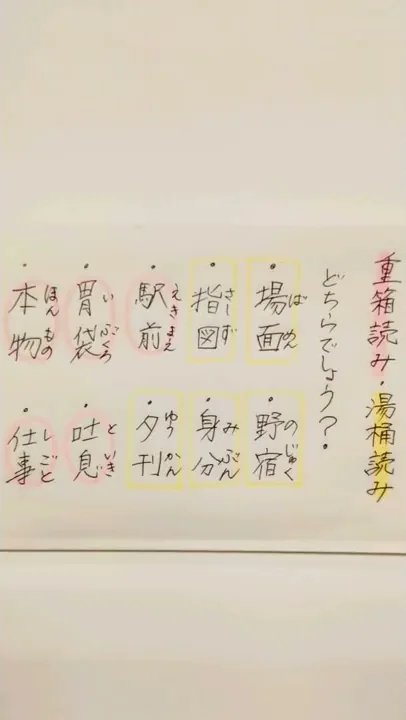 重箱読み・湯桶読み
どちらでしょう?
ばめん のじゅく
・場面 ・野宿
さしず みぶん
・指図 ・身分
えきまえ ゆうかん
・駅前 ・夕刊
いぶくろ といき
・胃袋 ・吐息
ほんもの しごと
・本物 ・仕事